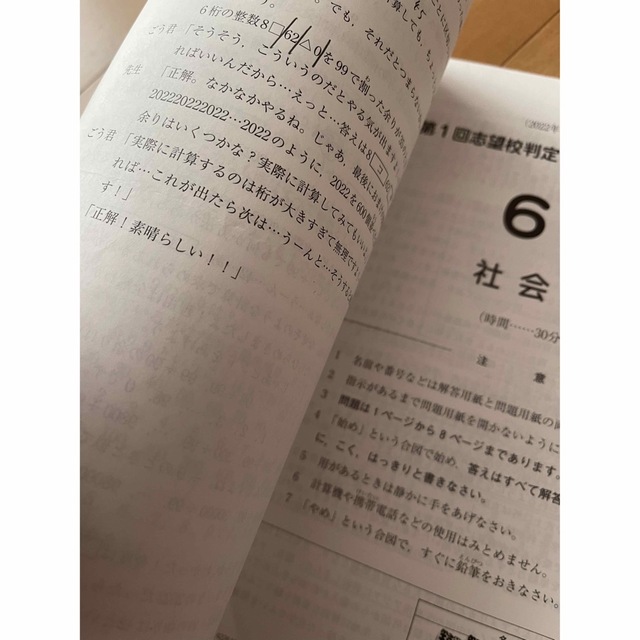 でも、それだとつまらない
6桁の整数8□62△0を99で割った余りが
ごう君「そうそう、こういうのだとやる気が出ます
ればいいんだから…えっと…答えは8
先生「正解。なかなかやるね。じゃあ、最後に
202220222022…2022のように、2022を600個
余りはいくつかな？実際に計算してみてもいい
ごう君「実際に計算するのは桁が大きすぎて無理です
れば…これが出たら次は…うーんと…そうする
す！」
「正解！素晴らしい！！」
（2022年
第1回志望校判定
6
社会
（時間……30分
注意
1 名前や番号などは解答用紙と問題用紙の
2 指示があるまで問題用紙を開かないように
3 問題は1ページから8ページまであります。
4 「始め」という合図で始め、答えはすべて解答
に、こく、はっきりと書きなさい。
5 用があるときは静かに手をあげなさい。
6 計算機や携帯電話などの使用はみとめません。
7 「やめ」という合図で、すぐに鉛筆をおきなさい。